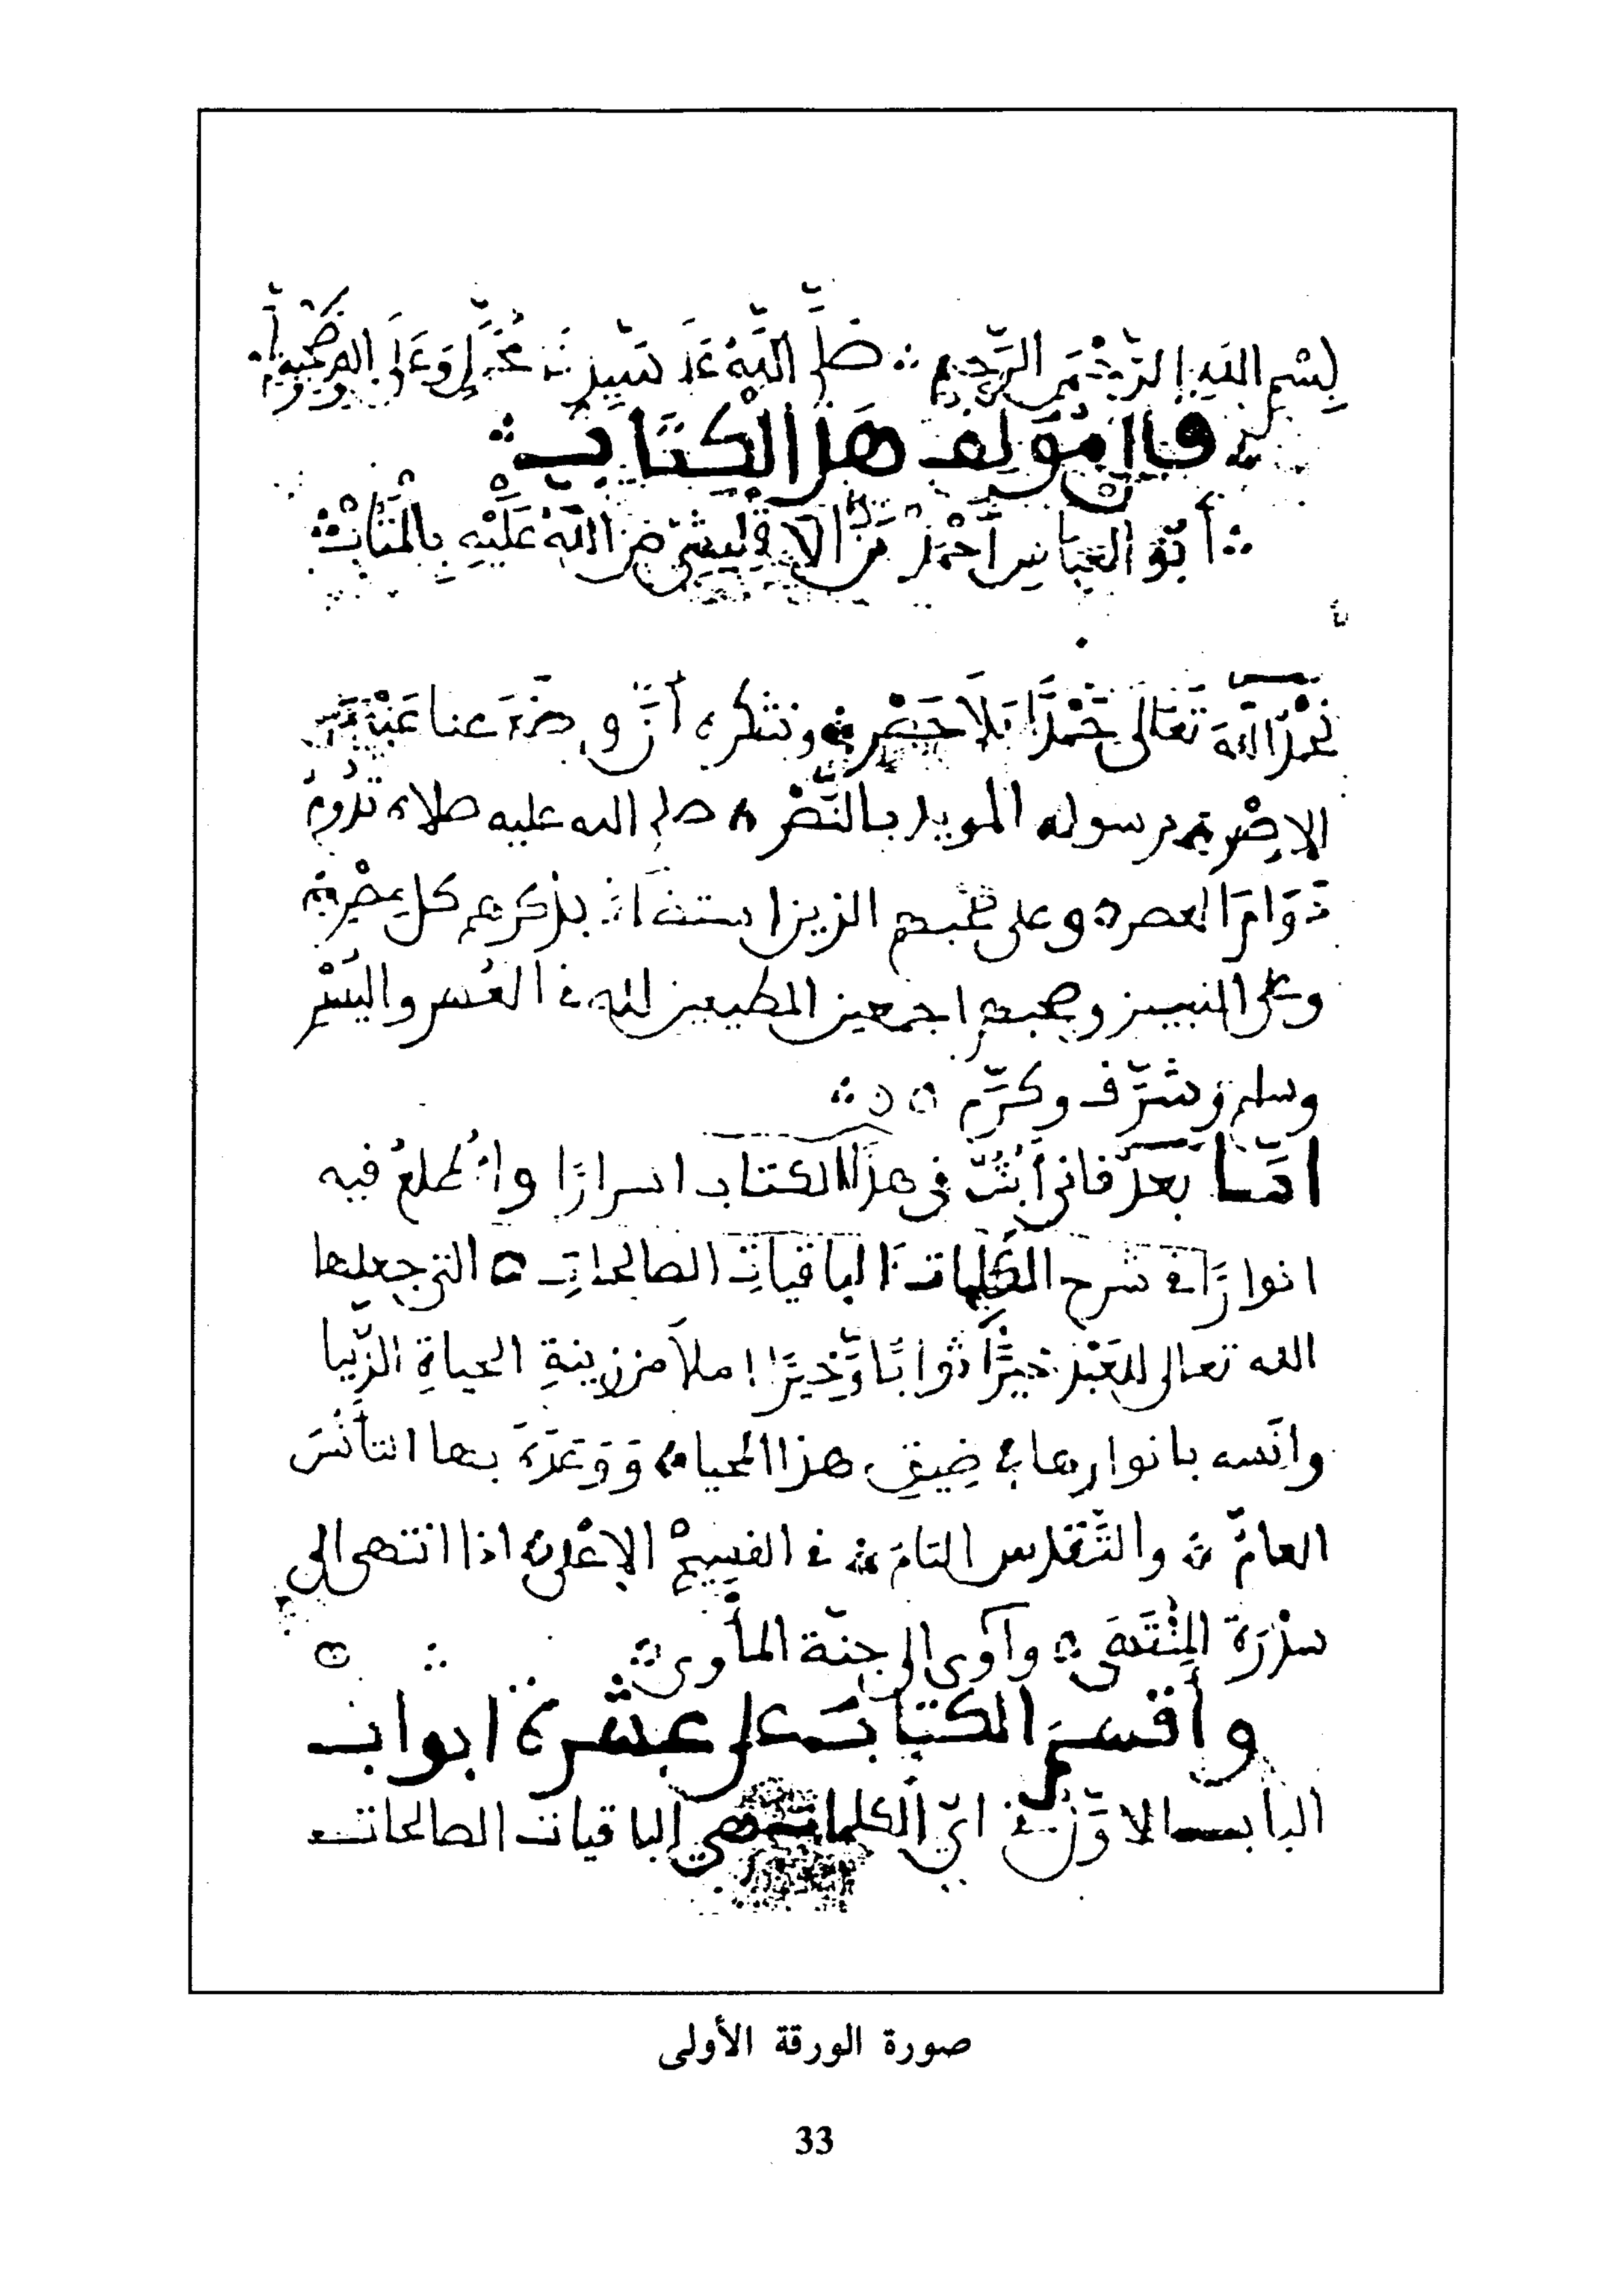 بِسْمِ اللهِ الرَّحْمَنِ الرَّحِيمِ صَلَّى اللهُ عَلَى سَيِّدِنَا مُحَمَّدٍ وَعَلَى
قال مُؤَلِّفُ هَذَا الْكِتَابِ
أَبُو العَبَّاسِ أَحْمَدُ الاقْلِيشِي اللهُ عَلَيْهِ
نَحْمَدُ اللهَ تَعَالَى حَمْدًا بِلَا حَصْرٍ ونشكره أنْ وضَعَ عنا
الاِصْرَ برسوله المويد بالنَّصْرِ صلى الله عليه صلاة تَدُومُ
دَوَامَ العصر وعلى صحبهم الذين بذكرهم كل
وعلى النبيين وصحبهم اجمعين المطيعين لله في العُسْرِ واليُسْرِ
وسلم وشَرَّف وكرَّم
امَّا بَعْدُ فاني أَبُثُّ في هذا الكتاب اسرارًا واُطلعُ فيه
انوارًا في شرح الكَلِمات الباقياتِ الصالحاتِ التي جعلها
الله تعالى للعَبْدِ خيْرًا ثوابًا وَّخيرًا املاً من زينةِ الحياةِ الدُّنيا
وانَسه بانوارها في ضِيقِ هذا المحيا وَوَعَدَهُ بها التأنُّسَ
العامَّ والتَّقَدُّس التامَّ في الفسِيحِ الاعْلى اذا انتهى الى
سِدْرَةِ المُنْتَهَى وآوى الى جنّة المأوى
وأقسم الكتابَ على عشرة ابواب
الباب الاوَّل في ايّ الكلمات هي الباقيات الصالحات
صورة الورقة الأولى
33